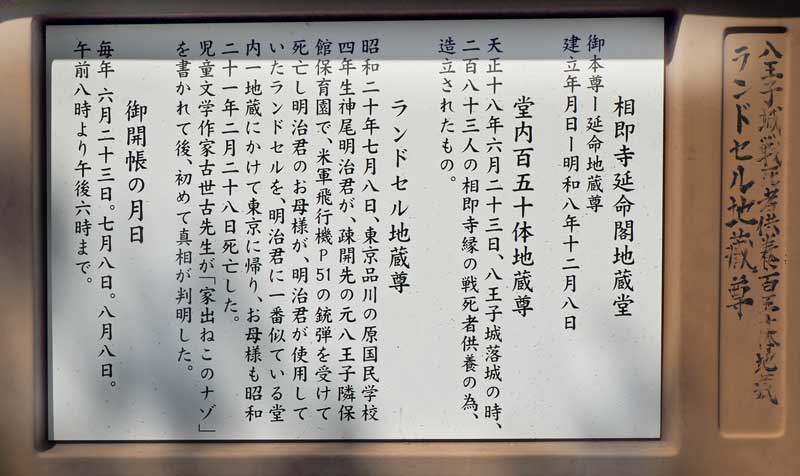 八王子城戦死者供養百五十体地蔵
ランドセル地蔵尊
相即寺延命閣地蔵堂
御本尊ー延命地蔵尊
建立年月日ー明和八年十二月八日
堂内百五十体地蔵尊
天正十八年六月二十三日、八王子城落城の時、
二百八十三人の相即寺縁の戦死者供養の為、
造立されたもの。
ランドセル地蔵尊
昭和二十年七月八日、東京品川の原国民学校
四年生神尾明治君が、疎開先の元八王子隣保
館保育園で、米軍飛行機P51の銃弾を受けて
死亡し明治君のお母様が、明治君が使用して
いたランドセルを、明治君に一番似ている堂
内一地蔵にかけて東京に帰り、お母様も昭和
二十一年二月二十八日死亡した。
児童文学作家古世古先生が「家出ねこのナゾ」
を書かれて後、初めて真相が判明した。
御開帳の月日
毎年 六月二十三日。七月八日。八月八日。
午前八時より午後六時まで。